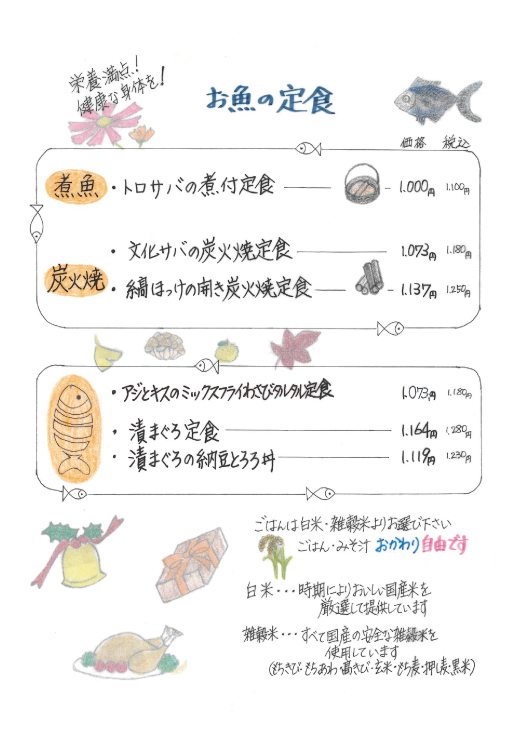 栄養満点!
健康な身体を!
お魚の定食
価格 税込
煮魚 ・トロサバの煮付定食 1.000円 1.100円
・文化サバの炭火焼定食 1.073円 1.180円
炭火焼 ・縞ほっけの開き炭火焼定食 1.137円 1.250円
・アジとキスのミックスフライわさびタルタル定食 1.073円 1.180円
・漬まぐろ定食 1.164円 1.280円
・漬まぐろの納豆とろろ丼 1.119円 1.230円
ごはんは白米・雑穀米よりお選び下さい
ごはん・みそ汁 おかわり自由です
白米・・・時期によりおいしい国産米を
厳選して提供しています
雑穀米・・・すべて国産の安全な雑穀米を
使用しています
(もちきび・もちあわ・高きび・玄米・もち麦・押し麦・黒米)